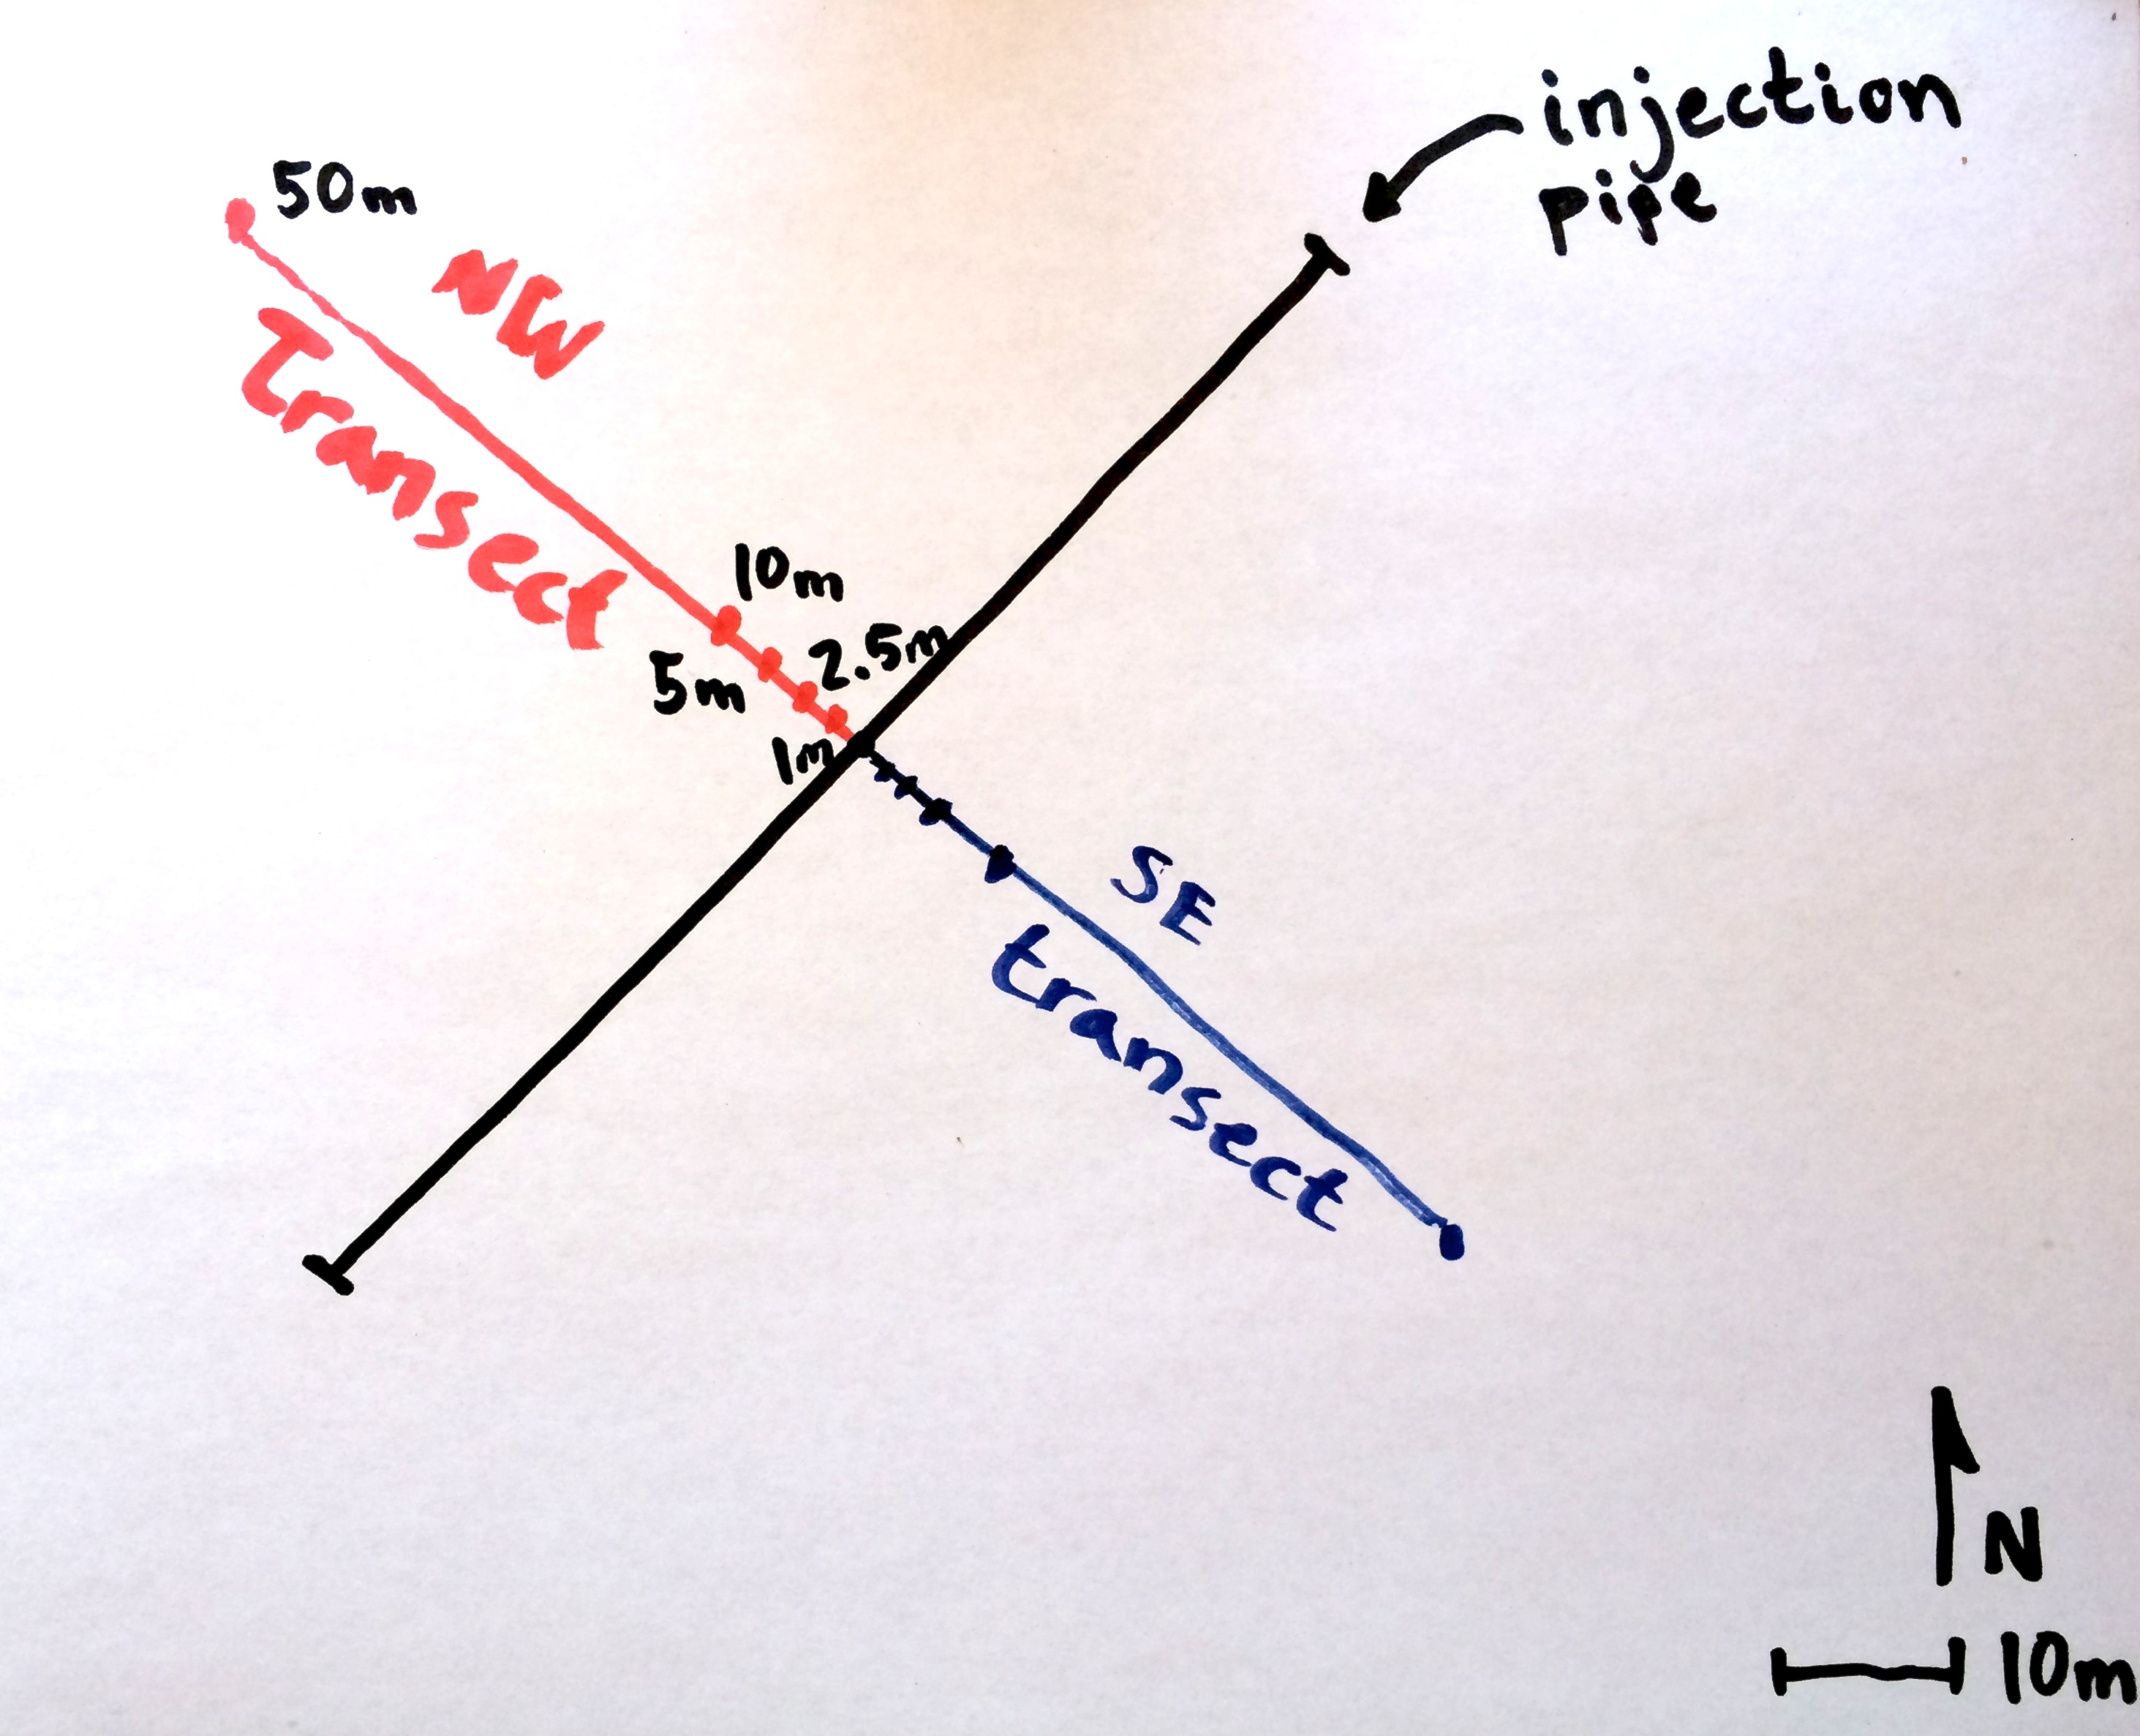 injection
pipe
50m
NW
Transect
10m
2.5m
5m
1m
SE
transect
N
10m